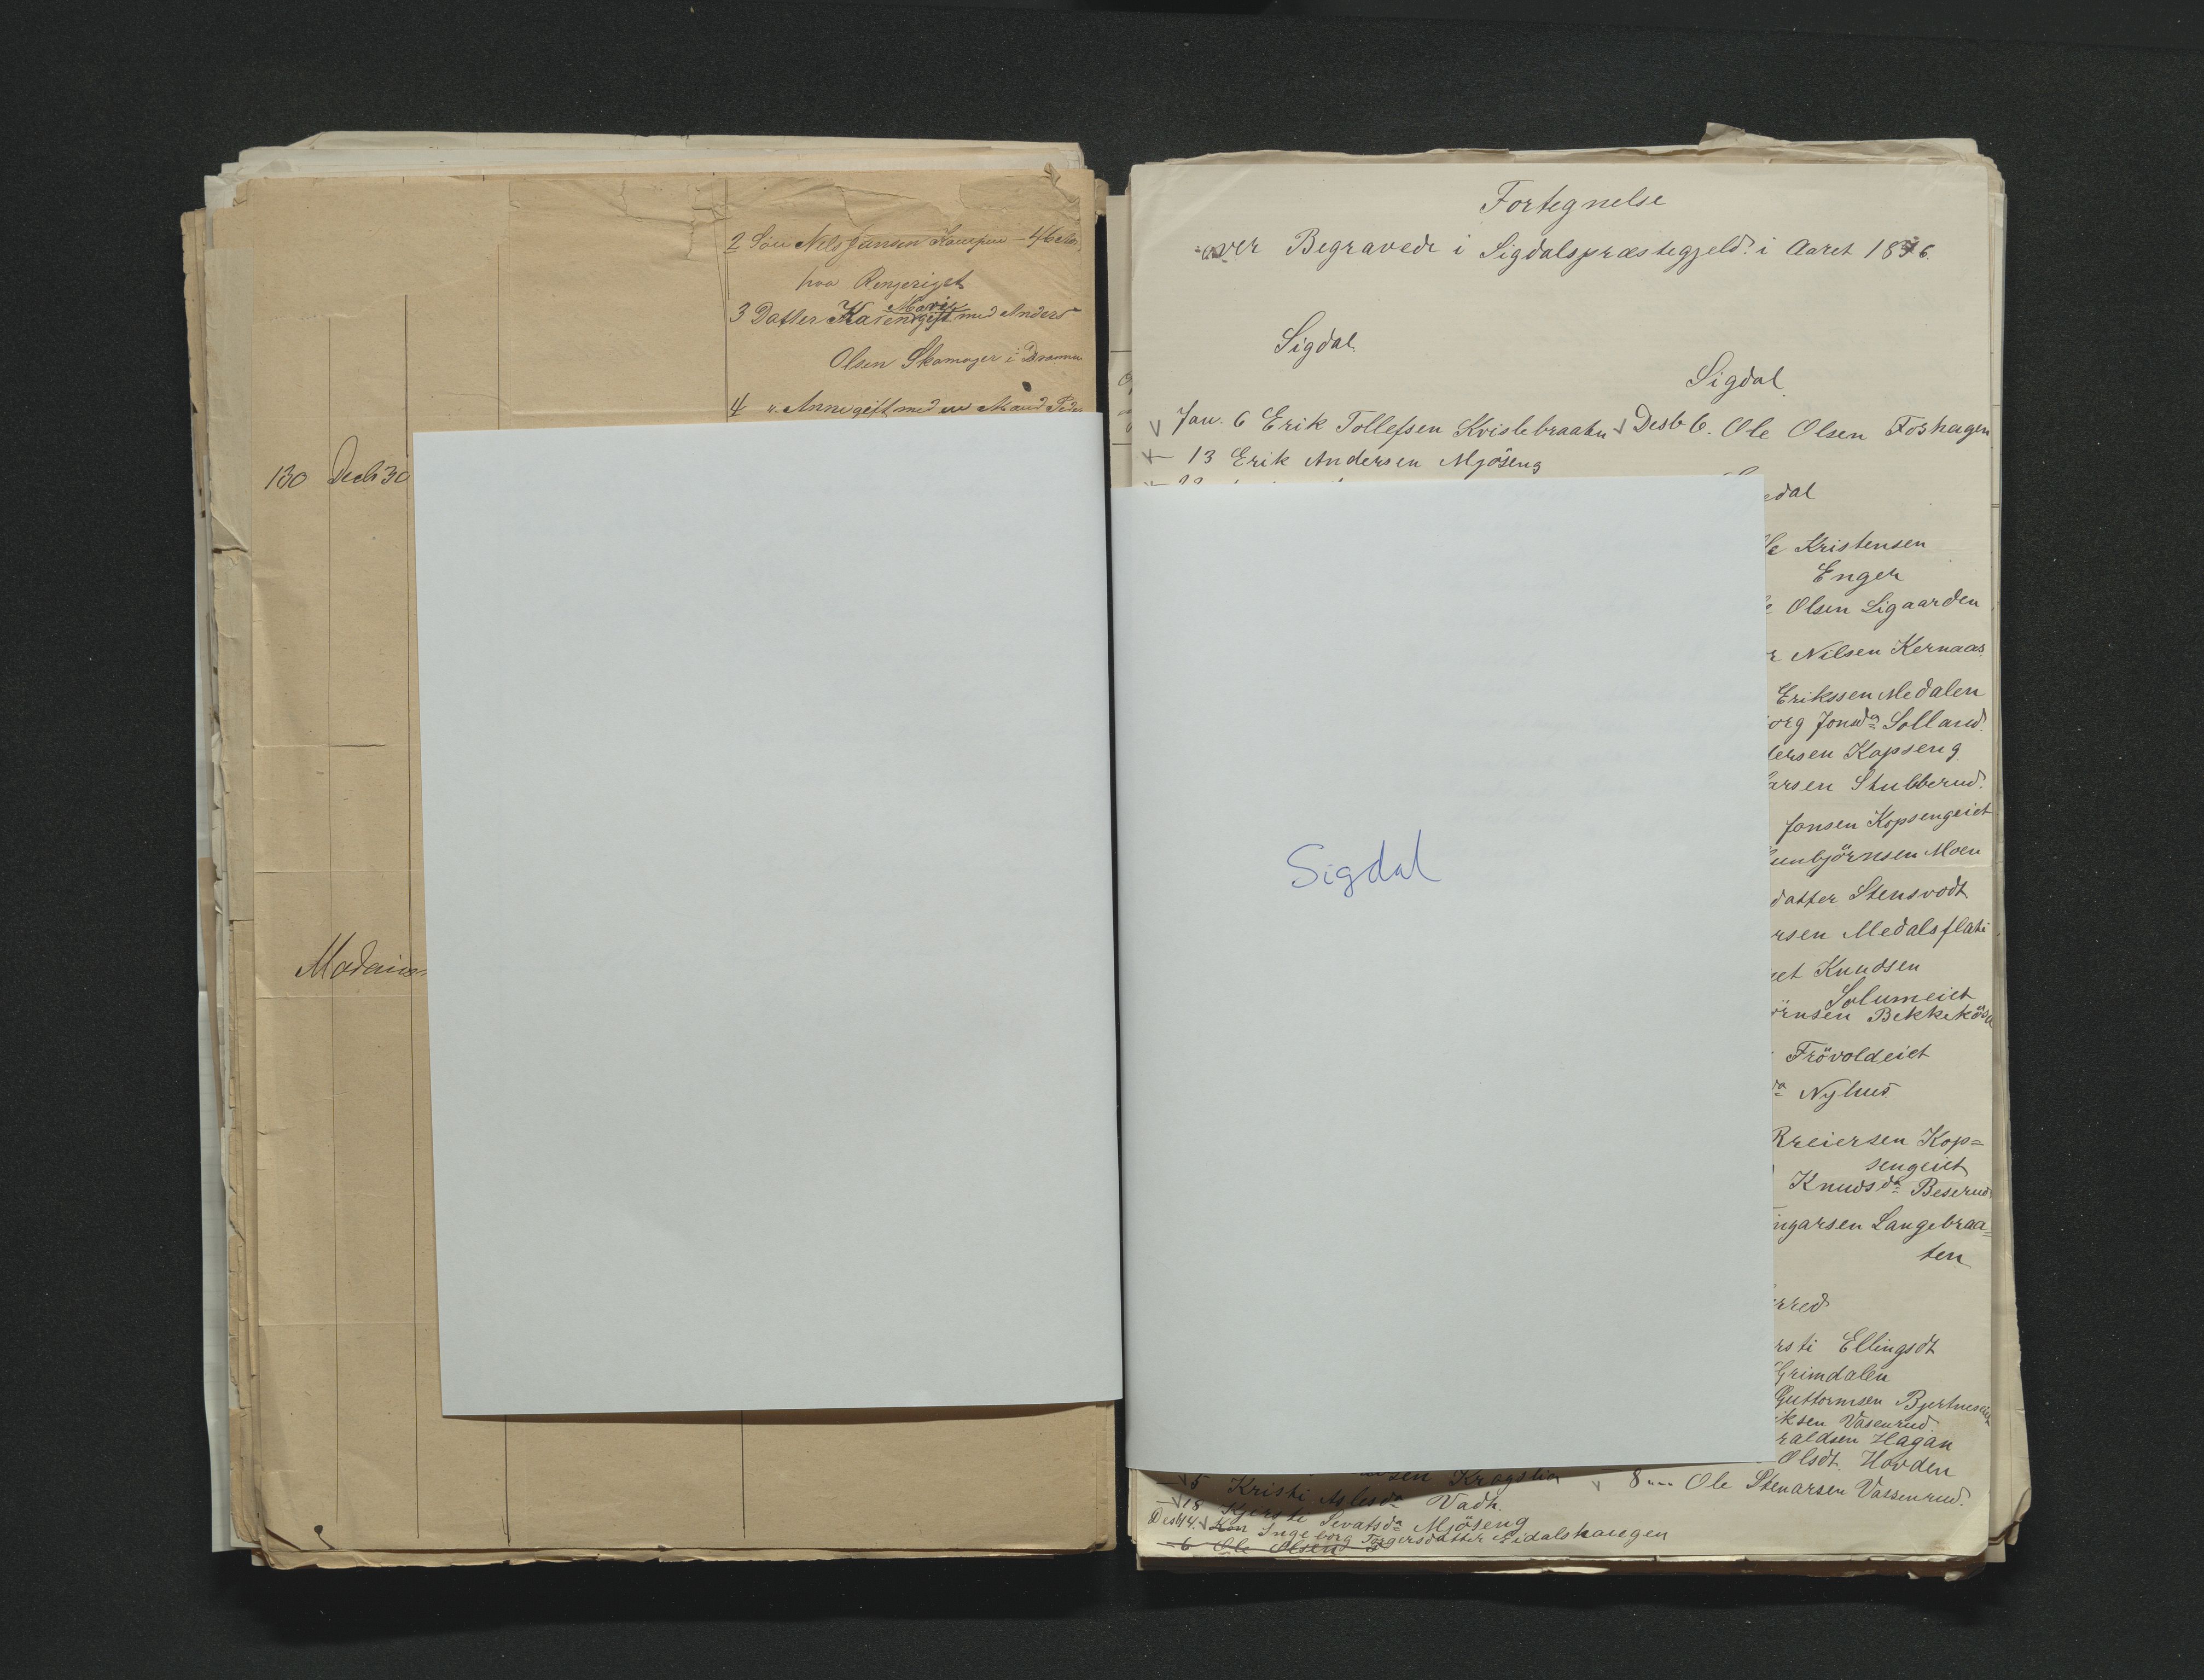 2 Søn Nels Jansen Kampen – 46 Aar
paa Rengeriget
Marie
3 Datter Karen gift med Anders
Olsen Skomager i Dramen
4 " Anne gift med
130 Decb 30
Fortegnelse
over Begravede i Sigdalspræstegjeld i Aaret 1876.
Sigdal
Jan. 6 Erik Tollefsen Kvislebraatn
13 Erik Andersen Mjöseng
Sigdal
Desb 6. Ole Olsen Foshagen
edal
le Kristensen
Enger
e Olsen Ligaarden
r Nilsen Kernaas
Erikssen Medalen
org Jonsda Solland
tersen Kopseng
arsen Stubberud
Jonsen Kopsengeiet
unbjörnsen Moen
datter Stensvodt
rsen Medalsflati
et Knudsen
Solumeiet
örnsen Bekkekös
Frövoldeiet
da Nyhus
Rreiersen Kop=
sengeiet
Knudsda Beserud
ngarsen Langebraa=
ten
rred
rsti Ellingsdt
Grimdalen
Guttormsen Bjertneseiet
iksen Vasenrud
raldsen Hagan
Olsdt. Hovden
8 Ole Stenarsen Vassenrud.
Sigdal
sen Kragslia
15 Kristi Aslesda Vadh.
18 Kjersti Sevatsda Mjöseng
Desb 14. Kon Ingeborg Torgersdatter Eidalshaugen
6 Ole Olsen